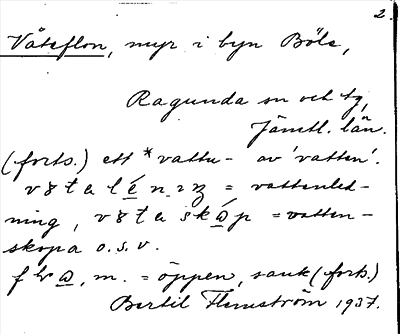 2.
Våteflon, myr i byn Böle,
Ragunda sn och tg,
Jämtl. län.
(forts.) ett *vattu- av 'vatten'.
= vattenled-
ning, = vatten-
skopa o.s.v.
m. = öppen, sank (forts.)
Bertil Flemström 1937.